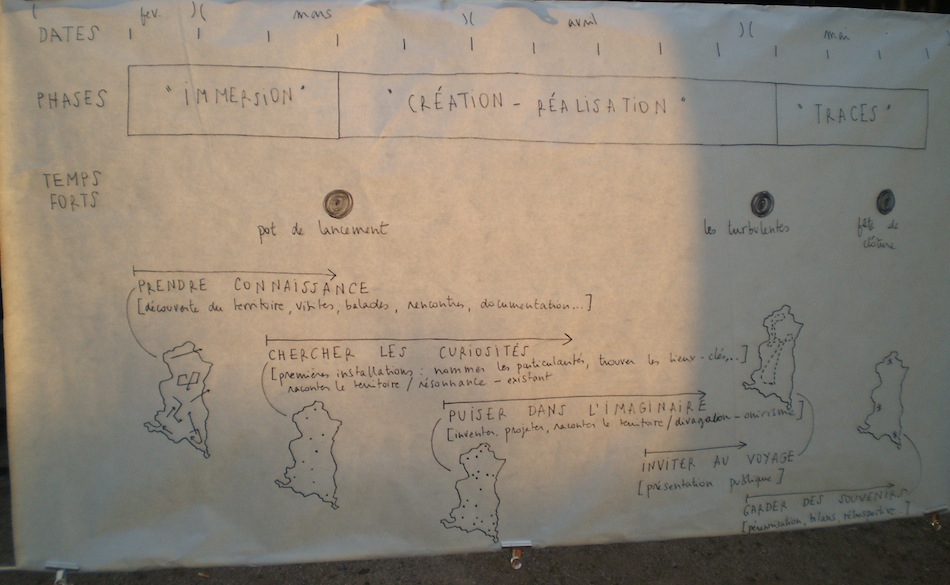 DATES fev. mars avril mai
PHASES "IMMERSION" "CRÉATION - RÉALISATION" "TRACES"
TEMPS
FORTS
pot de lancement les turbulentes fête de
clôture
PRENDRE CONNAISSANCE
[découverte du territoire, visites, balades, rencontres, documentation...]
CHERCHER LES CURIOSITÉS
[premières installations : nommer les particularités, trouver les lieux-clés...]
raconter le territoire / résonnance - existant
PUISER DANS L'IMAGINAIRE
[inventer, projeter, raconter le territoire / divagation - onirisme]
INVITER AU VOYAGE
[présentation publique]
GARDER DES SOUVENIRS
[pérennisation, bilans, rétrospective...]